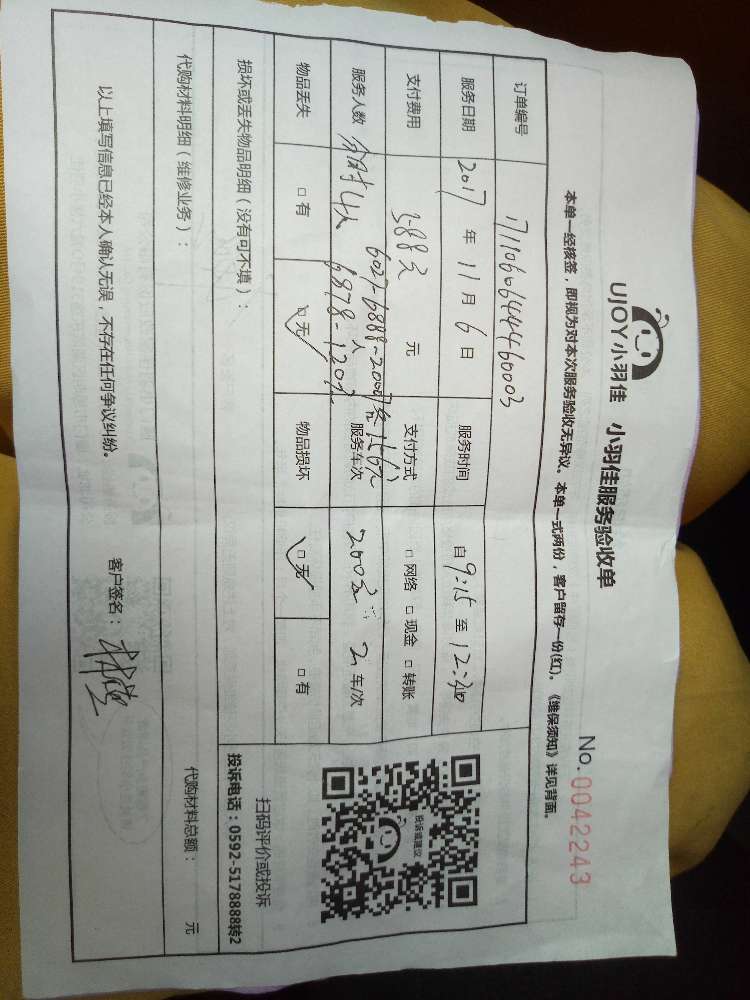 UJOY小羽佳 小羽佳服务验收单
No. 0042243
本单一经核签，即视为对本次服务验收无异议。本单一式两份，客户留存一份(红)。《维保须知》详见背面。
订单编号 17110606444460003
服务日期 2017 年 11 月 6 日 服务时间 自 9:15 至 12:30
支付费用 388元 元 支付方式 □ 网络 □ 现金 □ 转账
6027-6888-200
服务人数 人 6878-120 服务车次 200元 2 车/次
物品丢失 □ 有 □ 无 物品损坏 □ 无 □ 有
投诉或建议
扫码评价或投诉
投诉电话：0592-5178888转2
损坏或丢失物品明细（没有可不填）：
代购材料明细（维修业务）： 代购材料总额： 元
以上填写信息已经本人确认无误，不存在任何争议纠纷。 客户签名：